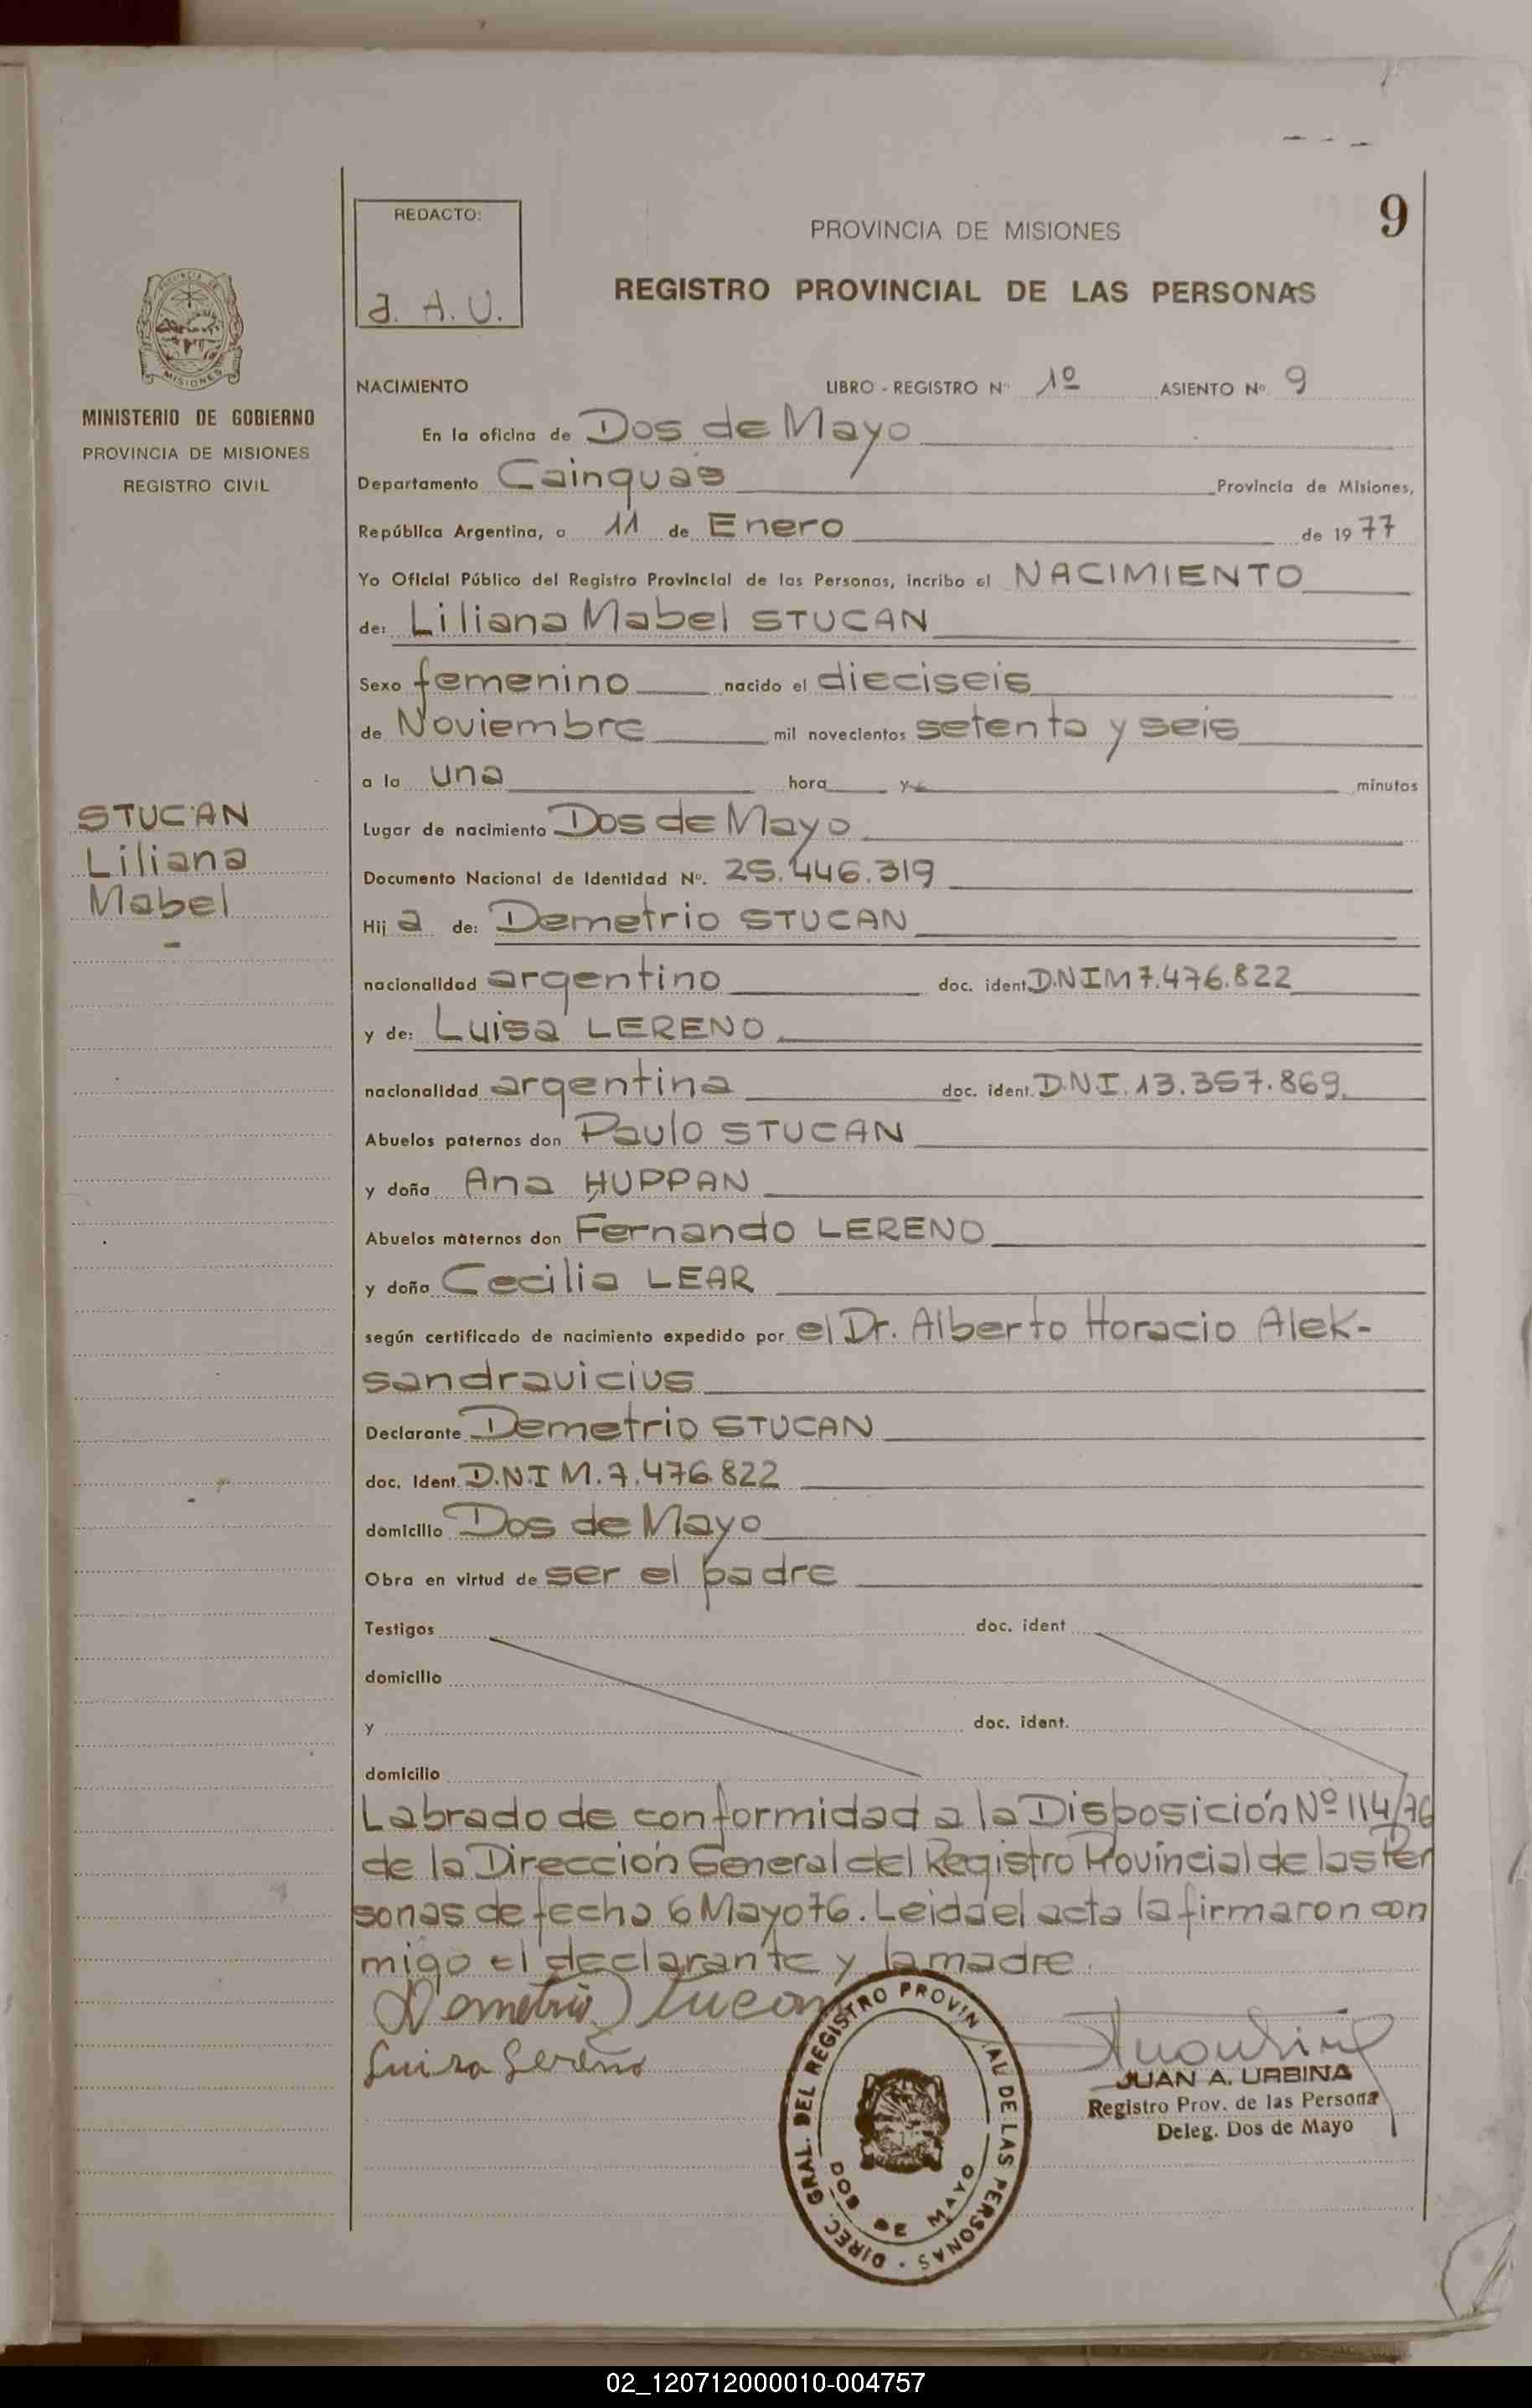 9
REDACTO:
J. A. U.
PROVINCIA DE MISIONES
REGISTRO PROVINCIAL DE LAS PERSONAS
PROVINCIA DE
MISIONES
MINISTERIO DE GOBIERNO
PROVINCIA DE MISIONES
REGISTRO CIVIL
NACIMIENTO LIBRO - REGISTRO Nº 1º ASIENTO Nº 9
En la oficina de Dos de Mayo
Departamento Cainguás Provincia de Misiones,
República Argentina, a 11 de Enero de 1977
Yo Oficial Público del Registro Provincial de las Personas, incribo el NACIMIENTO
de: Liliana Mabel STUCAN
Sexo femenino nacido el dieciseis
de Noviembre mil novecientos setenta y seis
a la una hora y minutos
STUCAN
Liliana
Mabel
-
Lugar de nacimiento Dos de Mayo
Documento Nacional de Identidad Nº. 25.446.319
Hij a de: Demetrio STUCAN
nacionalidad argentino doc. ident. D.N.I M 7.476.822
y de: Luisa LERENO
nacionalidad argentina doc. ident. D.N.I. 13.357.869.
Abuelos paternos don Paulo STUCAN
y doña Ana HUPPAN
Abuelos maternos don Fernando LERENO
y doña Cecilia LEAR
según certificado de nacimiento expedido por el Dr. Alberto Horacio Alek-
sandravicius
Declarante Demetrio STUCAN
doc. Ident. D.N.I M. 7.476.822
domicilio Dos de Mayo
Obra en virtud de ser el padre
Testigos doc. ident
domicilio
y doc. ident.
domicilio
Labrado de conformidad a la Disposición Nº 114/76
de la Dirección General del Registro Provincial de las Per
sonas de fecha 6 Mayo 76. Leida el acta la firmaron con
migo el declarante y la madre.
Demetrio Stucan
Luisa Lereno
DIREC. GRAL. DEL REGISTRO PROVINCIAL DE LAS PERSONAS
DOS DE MAYO
JUAN A. URBINA
Registro Prov. de las Persona
Deleg. Dos de Mayo
02_120712000010-004757